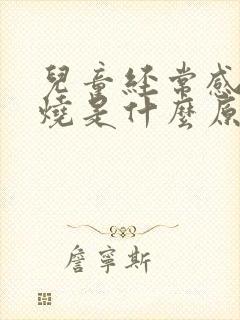 兒童經常感
燒是什麼原
詹寧斯